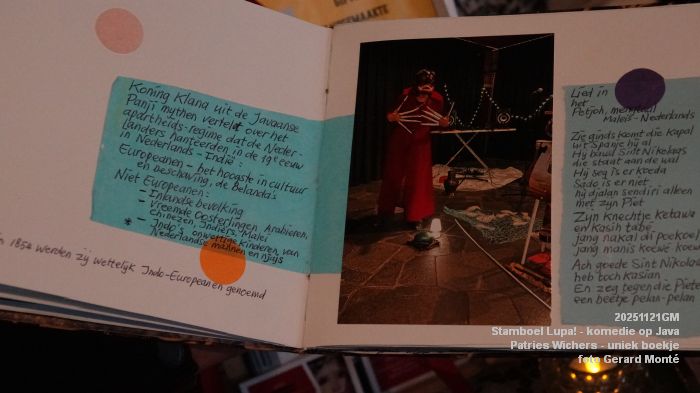 GEMAAKTE
Koning Klana uit de Javaanse
Panji mythen vertelt over het
apartheids-regime dat de Neder-
landers hanteerden in de 19e eeuw
in Nederlands-Indië:
Europeanen - het hoogste in cultuur
en beschaving, de belanda's
Niet Europeanen:
- Inlandse bevolking
- Vreemde Oosterlingen Arabieren,
Chinezen, Indiërs, Maleiers
* - Indo's onwettige kinderen van
Nederlandse mannen en njajs
1854 werden zij wettelijk Indo-Europeanen genoemd
Lied in
het
Petjoh, mengtaal
Maleis-Nederlands
Zie ginds komt die kapal
uit Spanje hij al
Hij bawa Sint Nikolaas
die staat aan de wal
Hij seg is er koeda
Sado is er niet
hij djalan sendiri alleen
met zijn Piet
Zijn knechtje ketawa
en kasih tabé
jang nakal di poekoel
jang manis koewé koe
Ach goede Sint Nikolaas
heb toch kasian
En zeg tegen die Pieten
een beetje pelan-pelan
20251121GM
Stamboel Lupa! - komedie op Java
Patries Wichers - uniek boekje
foto Gerard Monté